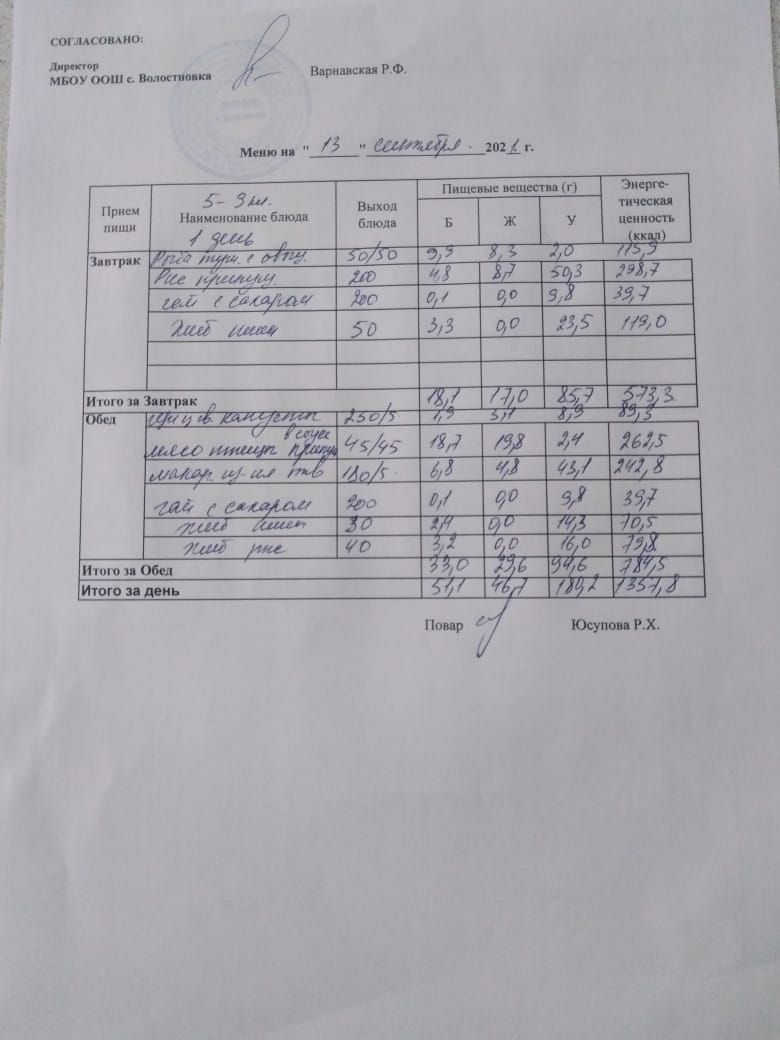 СОГЛАСОВАНО:
Директор
МБОУ ООШ с. Волостновка Варнавская Р.Ф.
Меню на "13" сентября 2021 г.
Прием пищи 5-9 кл. Наименование блюда 1 день Выход блюда Пищевые вещества (г) Б Ж У Энерге-тическая ценность (ккал)
Завтрак Рыба туш. с овощ. 50/50 9,9 8,3 2,0 115,9
Рис припущ. 200 4,8 8,7 50,3 298,7
чай с сахаром 200 0,1 0,0 9,8 39,7
хлеб пшен 50 3,3 0,0 23,5 119,0
Итого за Завтрак 18,1 17,0 85,7 573,3
Обед щи из св. капусты 250/5 1,9 5,1 8,9 89,3
мясо птицы припущ в соусе 45/45 18,7 19,8 2,4 262,5
макар. из-ия отв 180/5 6,8 4,8 43,1 242,8
чай с сахаром 200 0,1 0,0 9,8 39,7
хлеб пшен 30 2,4 0,0 14,3 70,5
хлеб рж 40 3,2 0,0 16,0 79,8
Итого за Обед 33,0 29,6 94,6 784,5
Итого за день 51,1 46,7 180,2 1357,8
Повар Юсупова Р.Х.